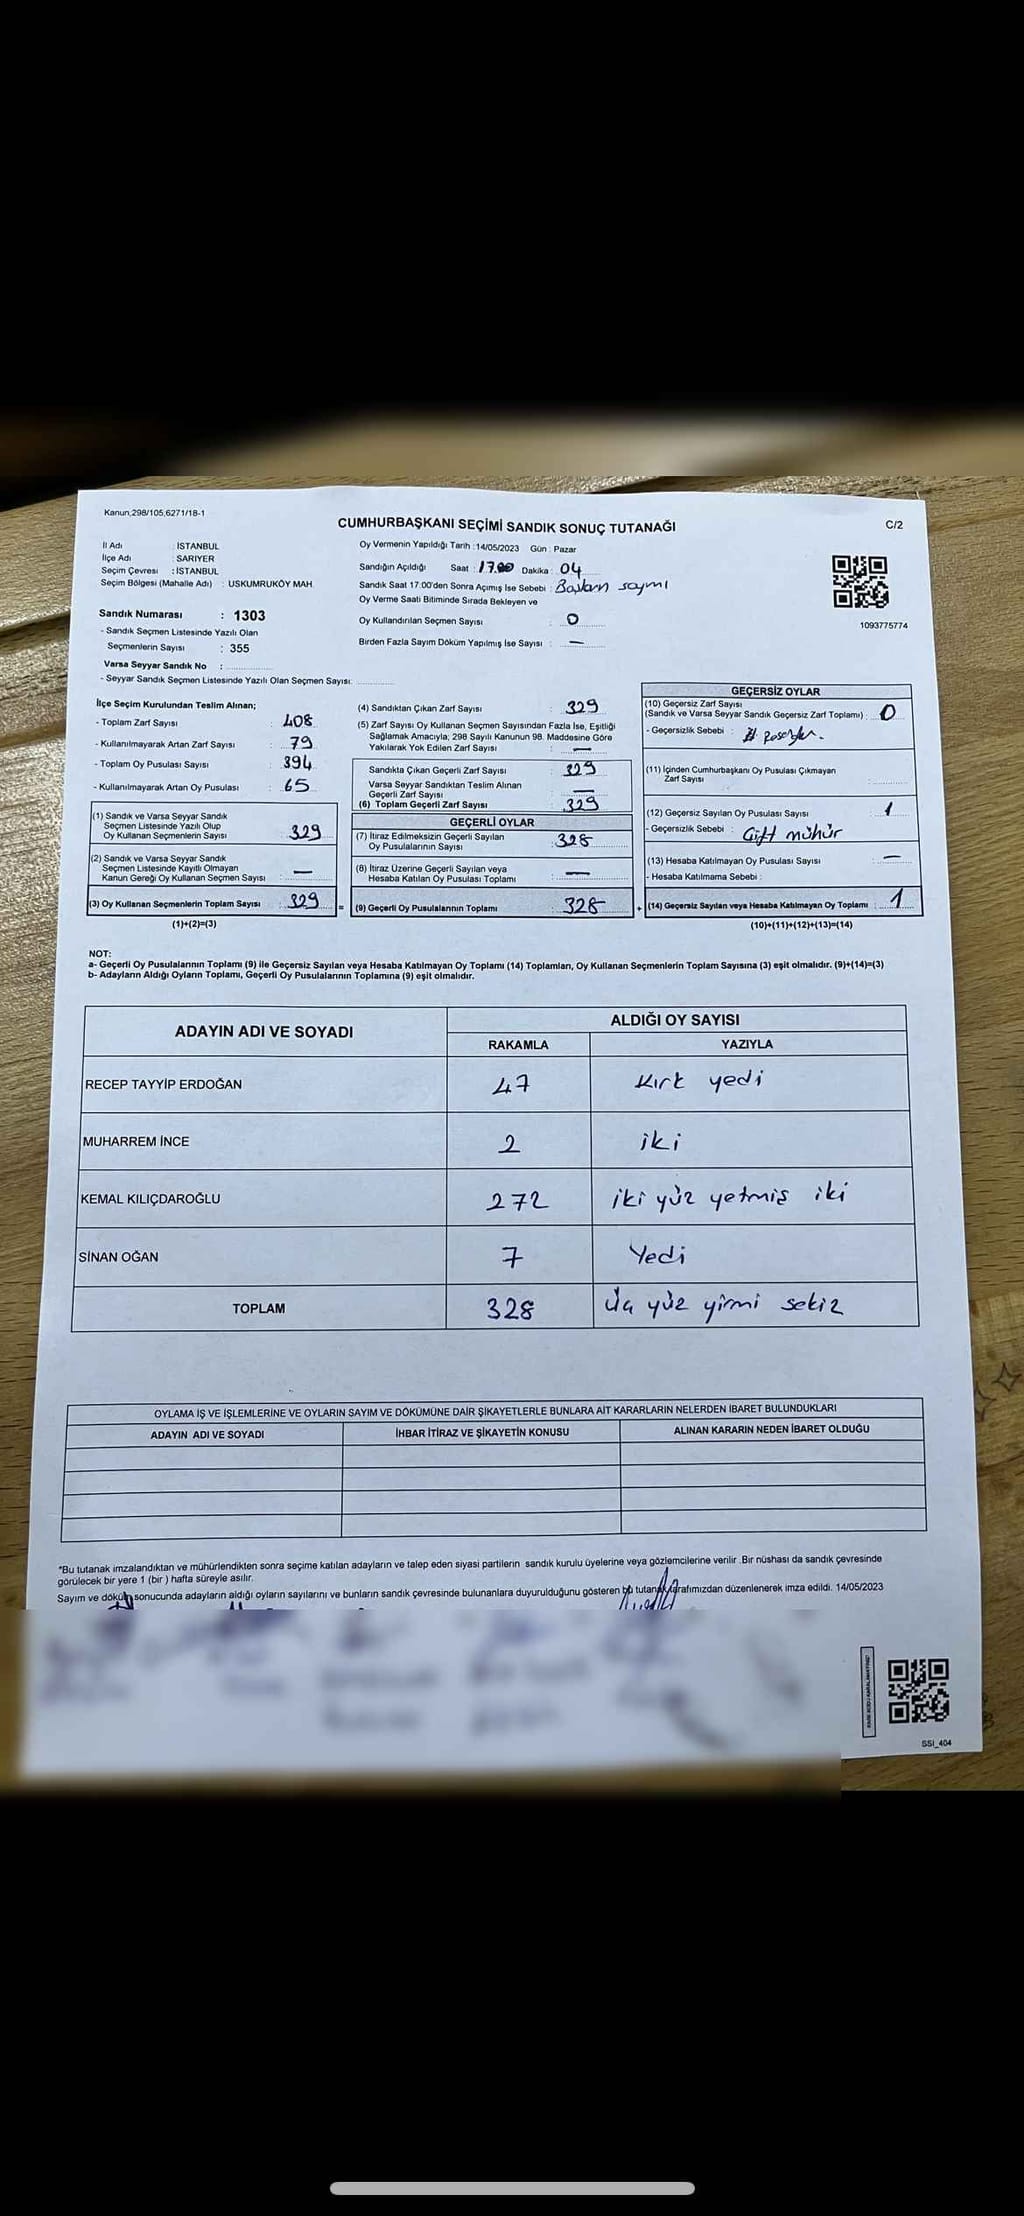 Kanun,298/105,6271/18-1
CUMHURBAŞKANI SEÇİMİ SANDIK SONUÇ TUTANAĞI
C/2
İl Adı : İSTANBUL
İlçe Adı : SARIYER
Seçim Çevresi : İSTANBUL
Seçim Bölgesi (Mahalle Adı) : USKUMRUKÖY MAH.
Oy Vermenin Yapıldığı Tarih : 14/05/2023 Gün : Pazar
Sandığın Açıldığı Saat : 17.00 Dakika : 04
Sandık Saat 17.00'den Sonra Açımış İse Sebebi :
Oy Verme Saati Bitiminde Sırada Bekleyen ve
Oy Kullandırılan Seçmen Sayısı : 0
Birden Fazla Sayım Döküm Yapılmış İse Sayısı : —
1093775774
Sandık Numarası : 1303
- Sandık Seçmen Listesinde Yazılı Olan
Seçmenlerin Sayısı : 355
Varsa Seyyar Sandık No :
- Seyyar Sandık Seçmen Listesinde Yazılı Olan Seçmen Sayısı:
İlçe Seçim Kurulundan Teslim Alınan;
- Toplam Zarf Sayısı : 408
- Kullanılmayarak Artan Zarf Sayısı : 79
- Toplam Oy Pusulası Sayısı : 394
- Kullanılmayarak Artan Oy Pusulası : 65
(1) Sandık ve Varsa Seyyar Sandık
Seçmen Listesinde Yazılı Olup
Oy Kullanan Seçmenlerin Sayısı : 329
(2) Sandık ve Varsa Seyyar Sandık
Seçmen Listesinde Kayıtlı Olmayan
Kanun Gereği Oy Kullanan Seçmen Sayısı : —
(3) Oy Kullanan Seçmenlerin Toplam Sayısı : 329
(1)+(2)=(3)
=
(4) Sandıktan Çıkan Zarf Sayısı : 329
(5) Zarf Sayısı Oy Kullanan Seçmen Sayısından Fazla İse, Eşitliği
Sağlamak Amacıyla; 298 Sayılı Kanunun 98. Maddesine Göre
Yakılarak Yok Edilen Zarf Sayısı : —
Sandıkta Çıkan Geçerli Zarf Sayısı : 329
Varsa Seyyar Sandıktan Teslim Alınan
Geçerli Zarf Sayısı : —
(6) Toplam Geçerli Zarf Sayısı : 329
GEÇERLİ OYLAR
(7) İtiraz Edilmeksizin Geçerli Sayılan
Oy Pusulalarının Sayısı : 328
(8) İtiraz Üzerine Geçerli Sayılan veya
Hesaba Katılan Oy Pusulası Toplamı : —
(9) Geçerli Oy Pusulalarının Toplamı : 328
+
GEÇERSİZ OYLAR
(10) Geçersiz Zarf Sayısı
(Sandık ve Varsa Seyyar Sandık Geçersiz Zarf Toplamı) : 0
- Geçersizlik Sebebi :
(11) İçinden Cumhurbaşkanı Oy Pusulası Çıkmayan
Zarf Sayısı :
(12) Geçersiz Sayılan Oy Pusulası Sayısı : 1
- Geçersizlik Sebebi : Çift mühür
(13) Hesaba Katılmayan Oy Pusulası Sayısı : —
- Hesaba Katılmama Sebebi :
(14) Geçersiz Sayılan veya Hesaba Katılmayan Oy Toplamı : 1
(10)+(11)+(12)+(13)=(14)
NOT:
a- Geçerli Oy Pusulalarının Toplamı (9) ile Geçersiz Sayılan veya Hesaba Katılmayan Oy Toplamı (14) Toplamları, Oy Kullanan Seçmenlerin Toplam Sayısına (3) eşit olmalıdır. (9)+(14)=(3)
b- Adayların Aldığı Oyların Toplamı, Geçerli Oy Pusulalarının Toplamına (9) eşit olmalıdır.
ADAYIN ADI VE SOYADI
ALDIĞI OY SAYISI
RAKAMLA YAZIYLA
RECEP TAYYİP ERDOĞAN 47 Kırk yedi
MUHARREM İNCE 2 iki
KEMAL KILIÇDAROĞLU 272 iki yüz yetmiş iki
SİNAN OĞAN 7 Yedi
TOPLAM 328 Üç yüz yirmi sekiz
OYLAMA İŞ VE İŞLEMLERİNE VE OYLARIN SAYIM VE DÖKÜMÜNE DAİR ŞİKAYETLERLE BUNLARA AİT KARARLARIN NELERDEN İBARET BULUNDUKLARI
ADAYIN ADI VE SOYADI İHBAR İTİRAZ VE ŞİKAYETİN KONUSU ALINAN KARARIN NEDEN İBARET OLDUĞU
*Bu tutanak imzalandıktan ve mühürlendikten sonra seçime katılan adayların ve talep eden siyasi partilerin sandık kurulu üyelerine veya gözlemcilerine verilir .Bir nüshası da sandık çevresinde
görülecek bir yere 1 (bir ) hafta süreyle asılır.
Sayım ve döküm sonucunda adayların aldığı oyların sayılarını ve bunların sandık çevresinde bulunanlara duyurulduğunu gösteren bu tutanak tarafımızdan düzenlenerek imza edildi. 14/05/2023
SSI_404